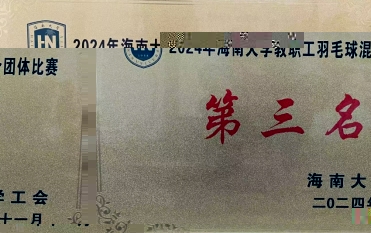 2024年海南大
2024年海南大学教职工羽毛球混
合团体比赛
第三名
学工会
海南大
十一月
二〇二四年